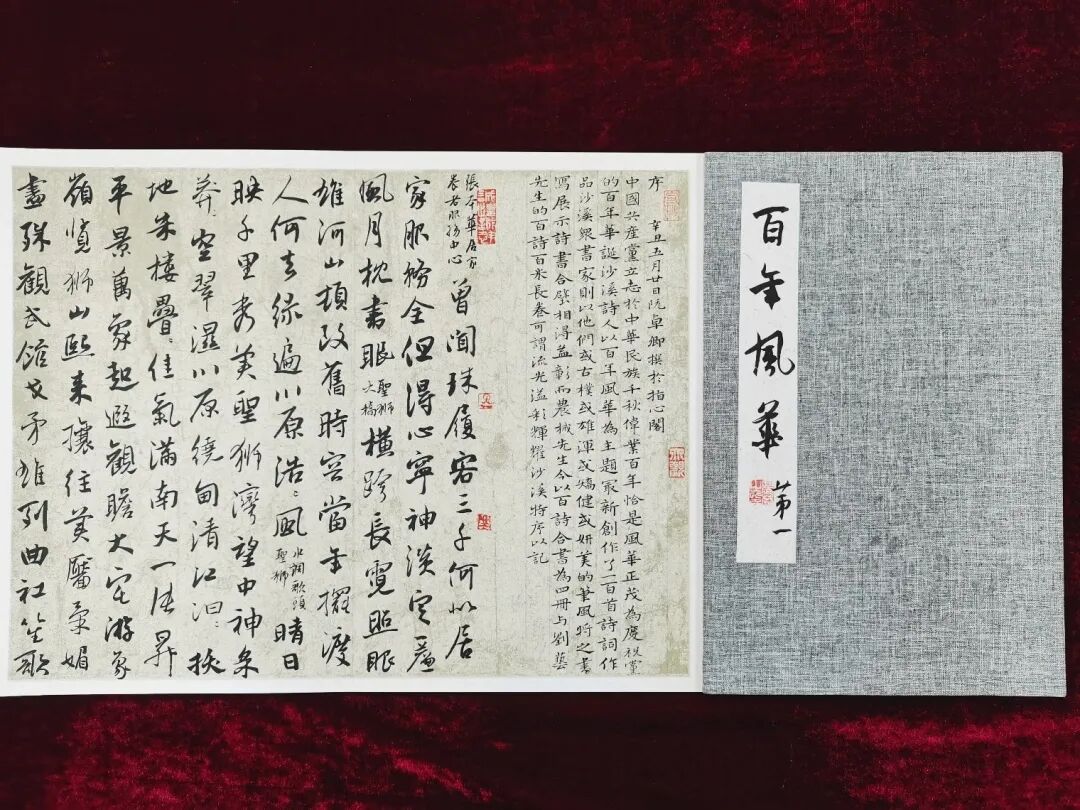 百年風華
第一
序
辛丑五月廿日阮卓卿撰於拍心閣
中國共產黨立志於中華民族千秋偉業百年恰是風華正茂為慶祝黨
的百年華誕沙溪詩人以百年風華為主題最新創作了一百首詩詞作
品沙溪眾書家則以他們或古樸或雄渾或矯健或妍美的筆風將之書
寫展示詩書合璧相得益彰而農械先生今以百詩合書為四冊與劉藝
先生的百詩百米長卷可謂流光溢彩輝耀沙溪特序以記
張本華居家
養老服務中心
曾聞珠履客三千何似居
家服務全但得心寧神淡定簷
風月枕書眠
聖獅
大橋
橫跨長霓照眼
雄河山頓改舊時容當年擺渡
人何去綠遍川原浩浩風
水調歌頭
聖獅
晴日
映千里秀美聖獅灣望中神
莽莽空翠濕川原繞甸清江汩汩拔
地朱樓疊疊佳氣滿南天一派昇
平景萬象起遐觀瞻大宅游
嶺獅山熙來攘往英媚
盡殊觀武館戈矛雄列曲社笙歌